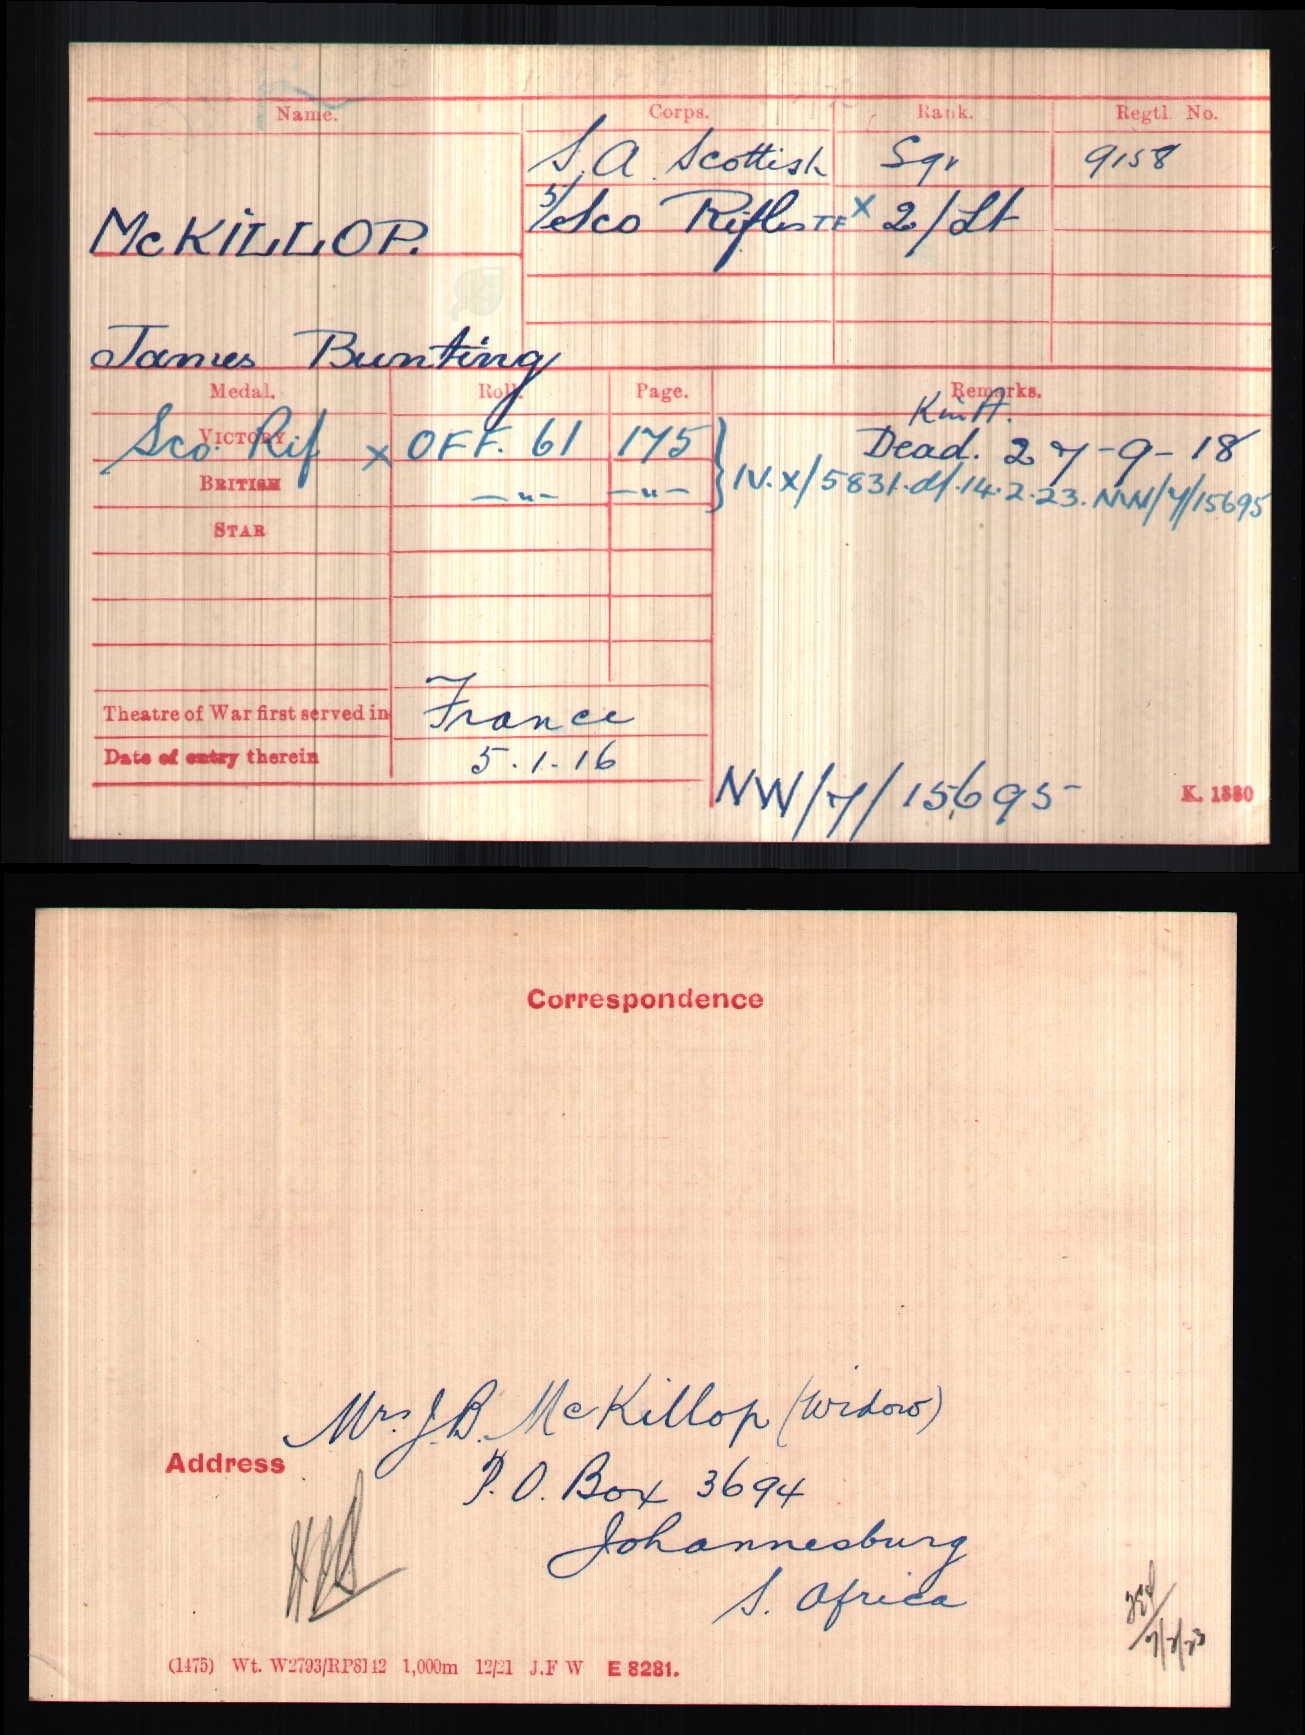 Name. Corps. Rank. Regtl. No.
S.A. Scottish Sgr 9158
McKILLOP. 5/Sco Rifles TF x 2/Lt
James Bunting
Medal. Roll. Page. Remarks.
K in A.
VICTORY Sco. Rif x OFF. 61 175 } Dead. 27-9-18
BRITISH —"— —"— IV. X/5831.d/.14.2.23. NW/7/15695
STAR
Theatre of War first served in France
Date of entry therein 5.1.16
NW/7/15695 K. 1380
Correspondence
Mrs J.B. McKillop (Widow)
Address P.O. Box 3694
Johannesburg
S. Africa
(1475) Wt. W2793/RP8142 1,000m 12/21 J.F W E 8281.